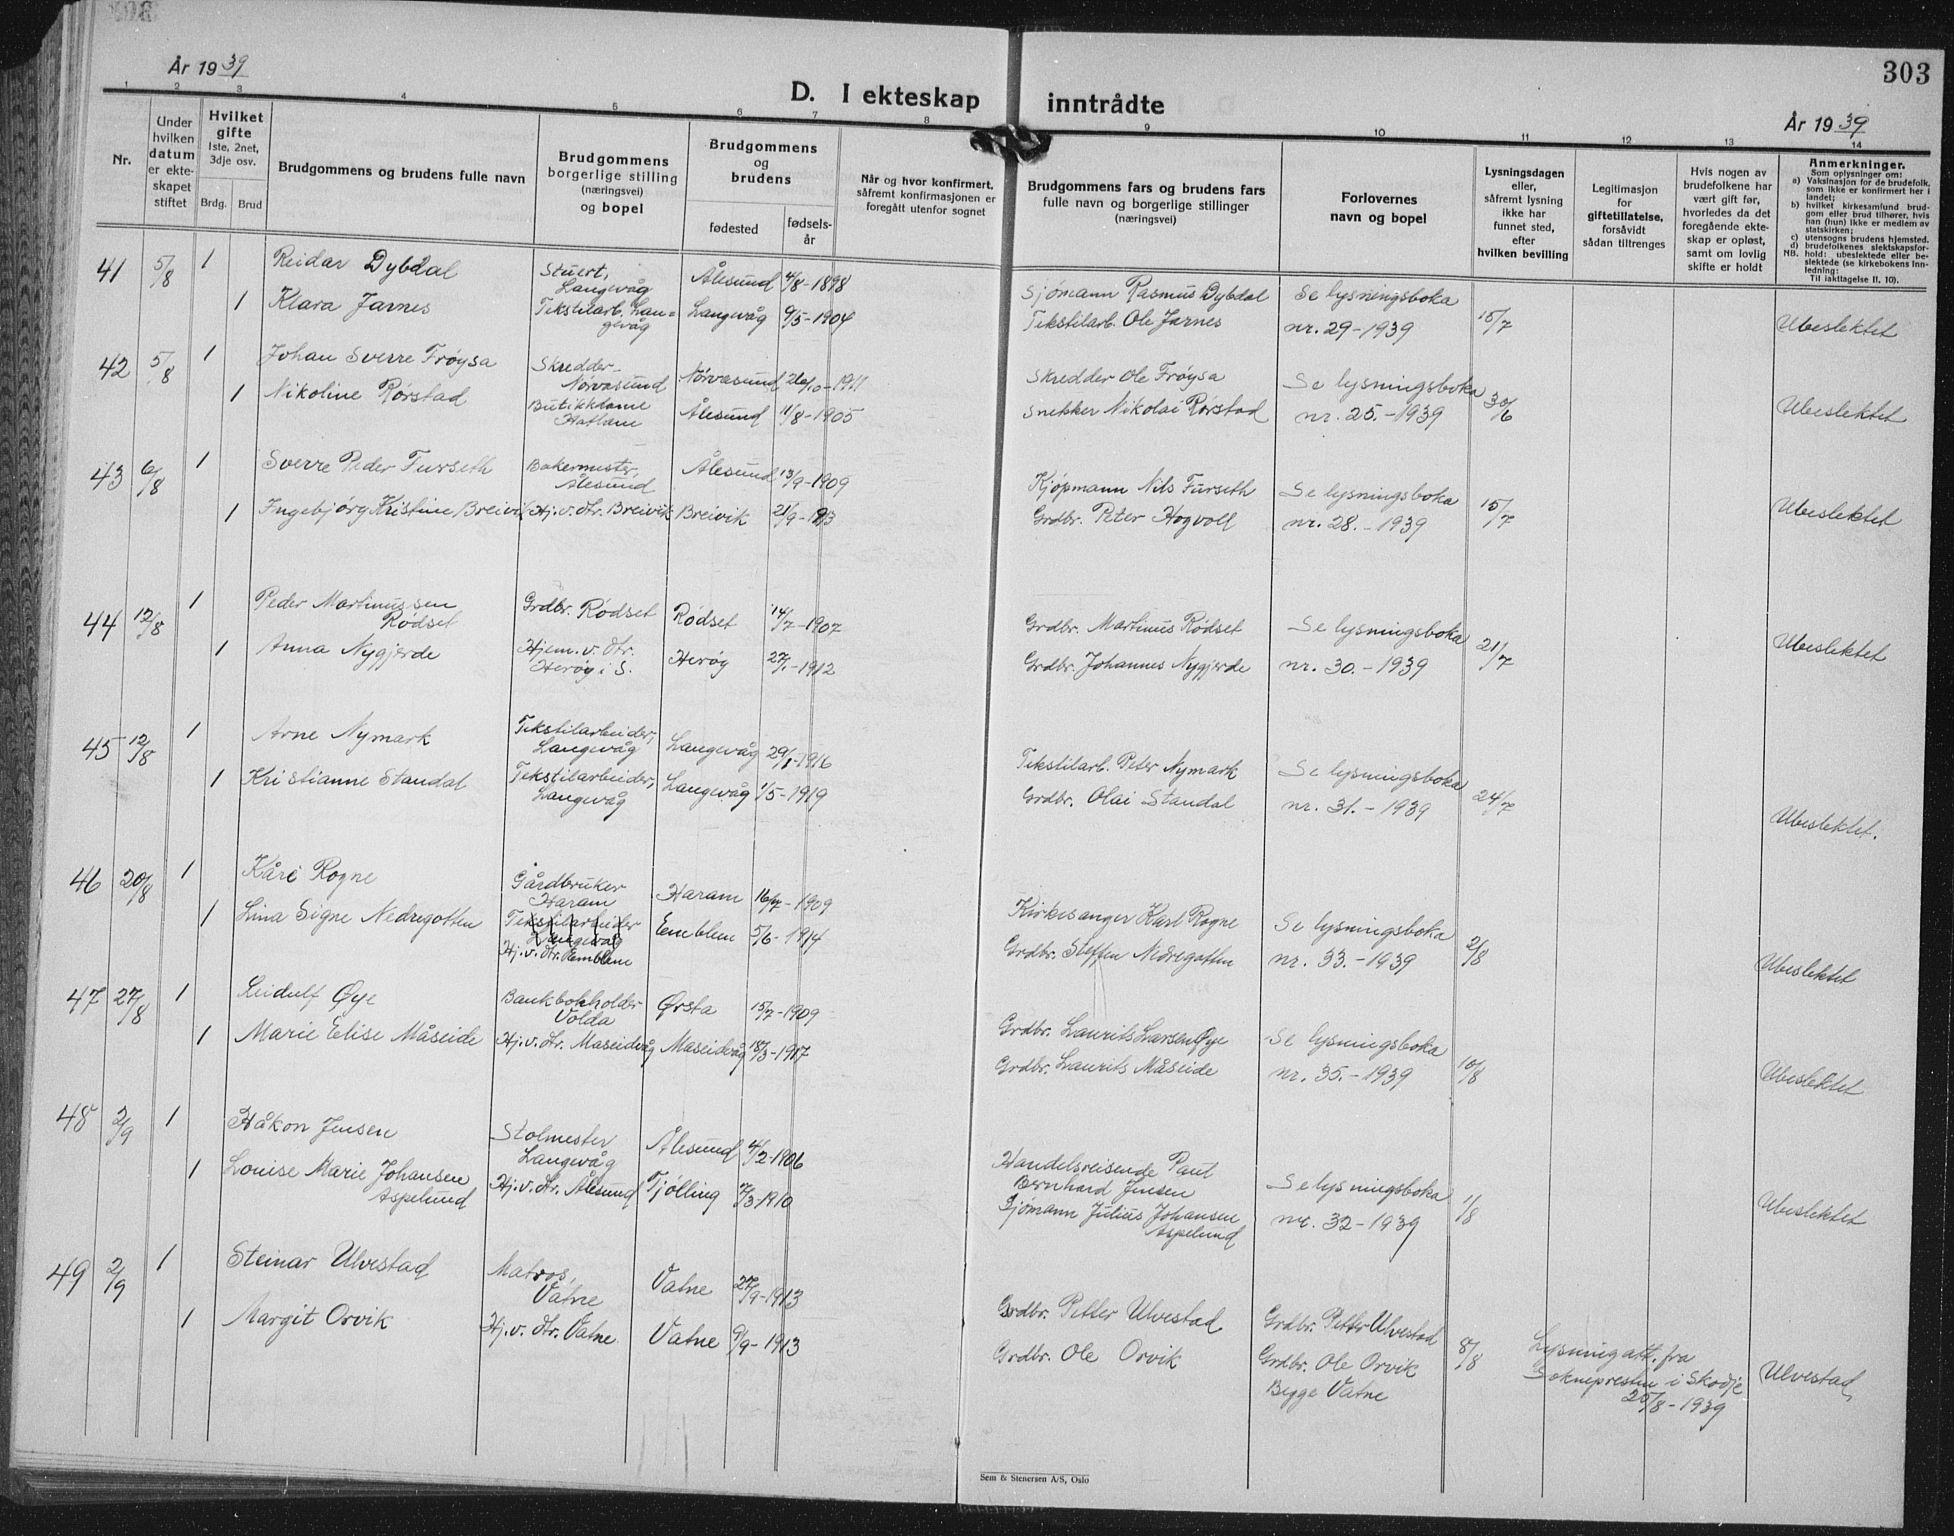 303
År 1939
D. I ekteskap inntrådte
År 1939
1 2 3 4 5 6 7 8 9 10 11 12 13 14
Nr.
Under hvilken datum er ekteskapet stiftet
Hvilket gifte
1ste, 2net, 3dje osv.
Brdg. Brud
Brudgommens og brudens fulle navn
Brudgommens borgerlige stilling (næringsvei) og bopel
Brudgommens og brudens
fødested
fødselsår
Når og hvor konfirmert, såfremt konfirmasjonen er foregått utenfor sognet
Brudgommens fars og brudens fars fulle navn og borgerlige stillinger (næringsvei)
Forlovernes navn og bopel
Lysningsdagen eller, såfremt lysning ikke har funnet sted, efter hvilken bevilling
Legitimasjon for giftetillatelse, forsåvidt sådan tiltrenges
Hvis nogen av brudefolkene har vært gift før, hvorledes da det foregående ekteskap er opløst, samt om lovlig skifte er holdt
Anmerkninger.
Som oplysninger om:
a) Vaksinasjon for de brudefolk, som ikke er konfirmert her i landet;
b) hvilket kirkesamfund brudgom eller brud tilhører, hvis han (hun) ikke er medlem av statskirken;
c) utensogns brudens hjemsted.
d) brudefolkenes slektskapsforhold: ubeslektede eller beslektede (se kirkebokens Innledning:
NB. Til iakttagelse II, 10).
41 5/8 1 Reidar Dybdal Stuert, Langevåg Ålesund 4/8-1898 Sjømann Rasmus Dybdal Se lysningsboka
1 Klara Jarnes Tekstilarb. Langevåg Langevåg 9/5-1904 Tekstilarb. Ole Jarnes nr. 29-1939 15/7 Ubeslektet
42 5/8 1 Johan Sverre Frøysa Skredder Nørvasund Nørvasund 26/10-1911 Skredder Ole Frøysa Se lysningsboka
1 Nikoline Rørstad Butikkdame Hatlane Ålesund 11/8-1905 Snekker Nikolai Rørstad nr. 25.-1939 30/6 Ubeslektet
43 6/8 1 Sverre Peder Furseth Bakermester, Ålesund Ålesund 13/9-1909 Kjøpmann Nils Furseth Se lysningsboka
1 Ingebjørg Kristine Breivik Hj.v. str. Breivik Breivik 21/9-1913 Grdbr. Peter Hogvoll nr. 28.-1939 15/7 Ubeslektet
44 12/8 1 Peder Martinussen Rødset Grdbr. Rødset Rødset 14/7-1907 Grdbr. Martinus Rødset Se lysningsboka
1 Anna Nygjerde Hjem.v. str. Herøy i S. Herøy 27/1-1912 Grdbr. Johannes Nygjerde nr. 30.-1939 21/7 Ubeslektet
45 12/8 1 Arne Nymark Tekstilarbeider, Langevåg Langevåg 29/1-1916 Tekstilarb. Peter Nymark Se lysningsboka
1 Kristianne Standal Tekstilarbeider, Langevåg Langevåg 1/5-1919 Grdbr. Olai Standal nr. 31.-1939 24/7 Ubeslektet.
46 20/8 1 Kåre Rogne Gårdbruker Haram Haram 16/7-1909 Kirkesanger Karl Rogne Se lysningsboka
1 Lina Signe Nedregotten Tekstilarbeider Langevåg Hj.v. str. Emblem Emblem 5/6-1914 Grdbr. Steffen Nedregotten nr. 33.-1939 2/8 Ubeslektet
47 27/8 1 Leidulf Øye Bankbokholder Volda Ørsta 15/7-1909 Grdbr. Laurits Larsen Øye Se lysningsboka
1 Marie Elise Måseide Hj.v. str. Maseidvåg Maseidvåg 18/3-1917 Grdbr. Laurits Måseide nr. 35.-1939 10/8 Ubeslektet
48 2/9 1 Håkon Jensen Stolmester Langevåg Ålesund 4/2-1906 Handelsreisende Paul Bernhard Jensen Se lysningsboka
1 Louise Marie Johansen Aspelund Hj.v. str. Ålesund Tjølling 7/3-1910 Sjømann Julius Johansen Aspelund nr. 32-1939 1/8 Ubeslektet
49 2/9 1 Steinar Ulvestad Matros, Vatne Vatne 27/9-1913 Grdbr. Petter Ulvestad Grdbr. Petter Ulvestad
1 Margit Orvik Hj.v. str. Vatne Vatne 9/9-1913 Grdbr. Ole Orvik Grdbr. Ole Orvik Begge Vatne 8/8 Lysningatt. fra Soknepresten i Skodje 25/8-1939 Ulvestad
Sem & Stenersen A/S, Oslo